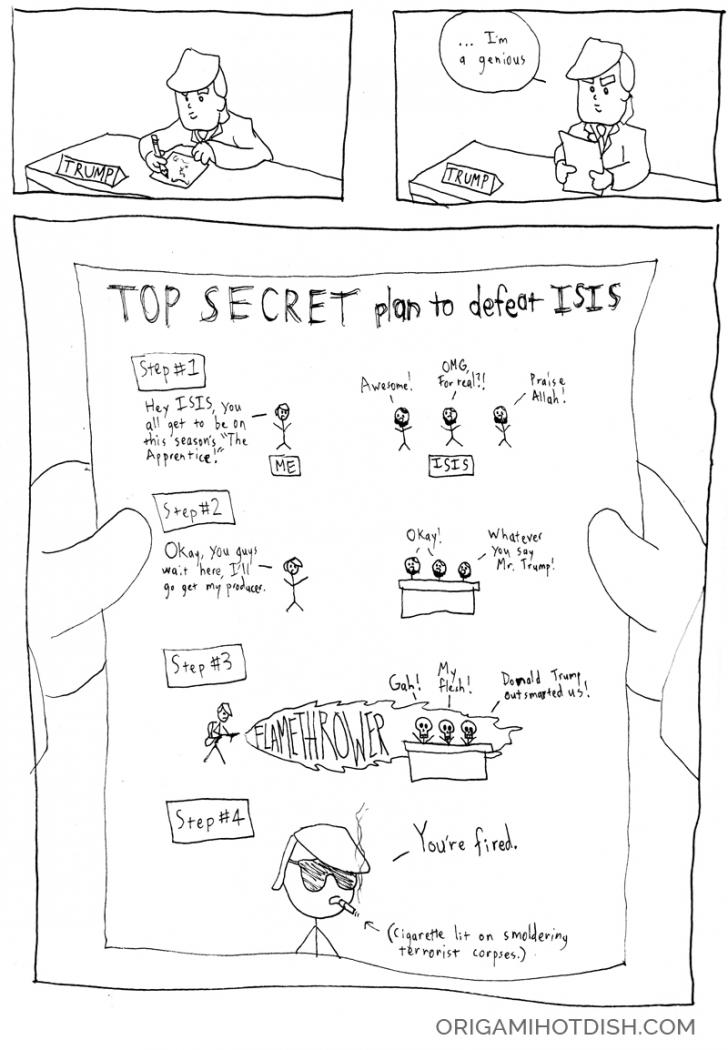 TRUMP
... I'm
a genious
TRUMP
TOP SECRET plan to defeat ISIS
Step #1
Hey ISIS, you
all get to be on
this season's "The
Apprentice!"
ME
Awesome!
OMG,
For real?!
Praise
Allah!
ISIS
Step #2
Okay, you guys
wait here, I'll
go get my producer.
Okay!
Whatever
you say
Mr. Trump!
Step #3
FLAMETHROWER
Gah!
My
flesh!
Donald Trump
outsmarted us!
Step #4
You're fired.
(Cigarette lit on smoldering
terrorist corpses.)
ORIGAMIHOTDISH.COM